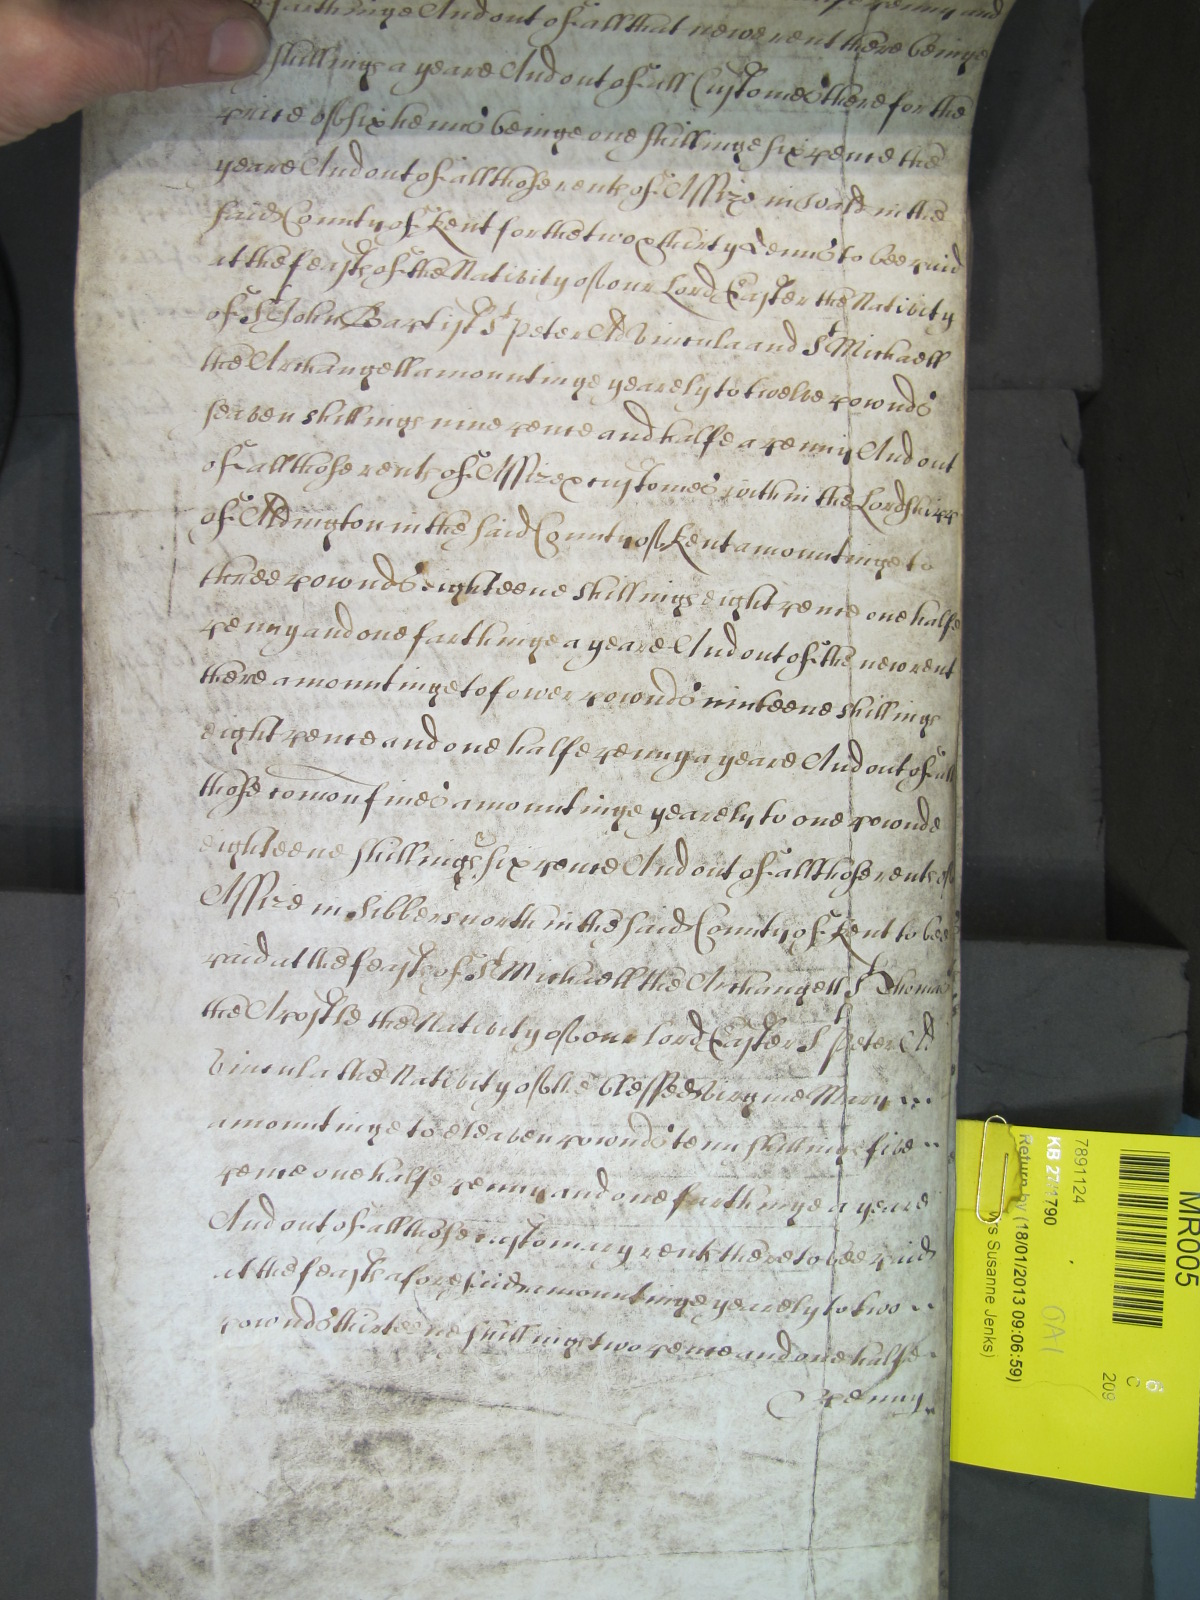 farthinge And out of all that newe rent there beinge
shillings a yeare And out of all Customes there for the
price of six henns beinge one shillinge six pence the
yeare And out of all those rents of Assize in Wald in the
said County of Kent for the two & thirty Denns to bee paid
at the feasts of the Nativity of our Lord Easter the Nativity
of St John Baptist St Peter Ad Vincula and St Michaell
the Archangell amountinge yearely to twelve pownds
seaven shillings nine pence and halfe a penny And out
of all those rents of Assize & customes within the Lordshipp
of Aldington in the said County of Kent amountinge to
three pownds eighteene shillings eight pence one halfe
penny and one farthinge a yeare And out of the new rent
there amountinge to fower pownds nineteene shillings
eight pence and one halfe penny a yeare And out of all
those comon fines amountinge yearely to one pownde
eighteene shillings six pence And out of all those rents of
Assize in Sibbersnorth in the said County of Kent to bee
paid at the feasts of St Michaell the Archangell St Thomas
the Apostle the Nativity of our lord Easter St Peter Ad
Vincula the Nativity of the blessed virgine Mary ...
amountinge to eleaven pownds tenn shillings five ..
pence one halfe penny and one farthinge a yeare
And out of all those customary rents there to bee paid
at the feasts aforesaid amountinge yearely to two ..
pownds thirteene shillings two pence and one halfe
penny
MR005
6
C
209
7891124
KB 27/1790
OA1
Return by (18/01/2013 09:06:59)
Susanne Jenks)